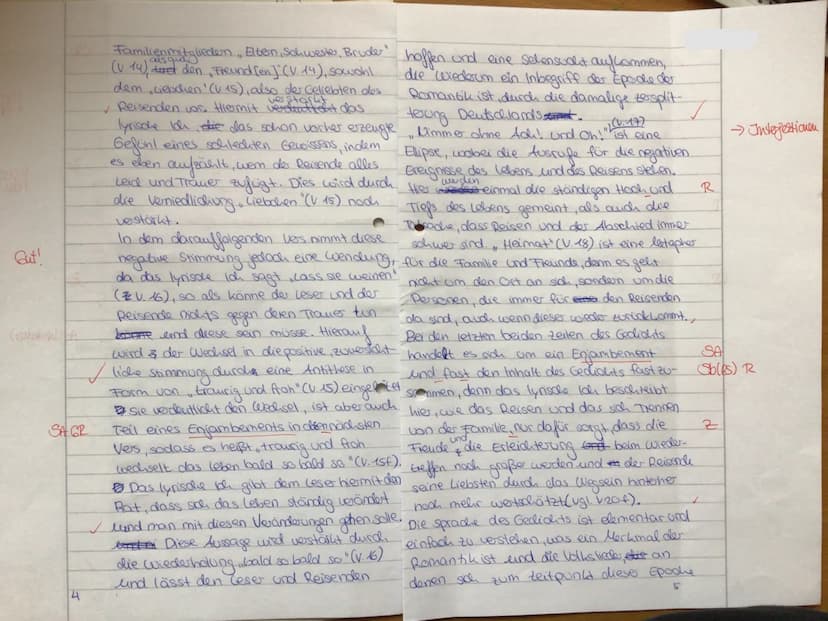 Familienmitgliedern „Eltern, Schwester, Bruder"
(V.14), den „Freund[en]" (V.14), sowohl
dem „Liebchen" (V.15), also der Geliebten des
Reisenden vor. Hiermit verstärkt das
lyrische Ich, das schon vorher erzeugte
Gefühl eines schlechten Gewissens, indem
es eben aufzählt, wem der Reisende alles
Leid und Trauer zufügt. Dies wird durch
die Verniedlichung „Liebchen" (V.15) noch
verstärkt.
In dem darauffolgenden Vers nimmt diese
Gut!
negative Stimmung jedoch eine Wendung,
da das lyrische Ich sagt „lass sie weinen"
(V.16), so als könne der Leser und der
Reisende nichts gegen deren Trauer tun
und diese sein müsse. Hierauf
wird der Wechsel in die positive, zuversicht
liche Stimmung durch eine Antithese in
Form von „traurig und froh" (V.15) eingeleitet
Sie verdeutlicht den Wechsel, ist aber auch
SA GR
Teil eines Enjambements in den nächsten
Vers, sodass es heißt „traurig und froh
wechselt das Leben bald so bald so" (V.15f).
Das lyrische Ich gibt dem Leser hiermit den
Rat, dass sich das Leben ständig verändert
und man mit diesen Veränderungen gehen solle.
Diese Aussage wird verstärkt durch
die Wiederholung „bald so bald so" (V.16)
und lässt den Leser und Reisenden
4
hoffen und eine Sehnsucht aufkommen,
die wiederum ein Inbegriff der Epoche der
Romantik ist, durch die damalige Zersplit-
terung Deutschlands.
„Nimmer ohne Ach! und Oh!" (V.17) ist eine
→ Interjektionen
Ellipse, wobei die Ausrufe für die negativen
Ereignisse des Lebens und des Reisens stehen.
Hier werden einmal die ständigen Hoch und
R
Tiefs des Lebens gemeint, als auch die
Tatsache, dass Reisen und der Abschied immer
schwer sind. „Heimat" (V.18) ist eine Metapher
für die Familie und Freunde, denn es geht
nicht um den Ort an sich, sondern um die
Personen, die immer für den Reisenden
da sind, auch wenn dieser wieder zurückkommt.
Bei den letzten beiden Zeilen des Gedichts
handelt es sich um ein Enjambement
SA
und fast den Inhalt des Gedichts fast zu-
Sb(fs) R
sammen, denn das lyrische Ich beschreibt
hier, wie das Reisen und das sich Trennen
von der Familie, nur dafür sorgt, dass die
Z
Freude und die Erleichterung beim Wieder-
treffen noch größer werden und der Reisende
seine Liebsten durch das Wegsein hinterher
noch mehr wertschätzt (vgl. V20f.).
Die Sprache des Gedichts ist elementar und
einfach zu verstehen, was ein Merkmal der
Romantik ist und die Volkslieder, an
denen sich zum Zeitpunkt dieser Epoche
5